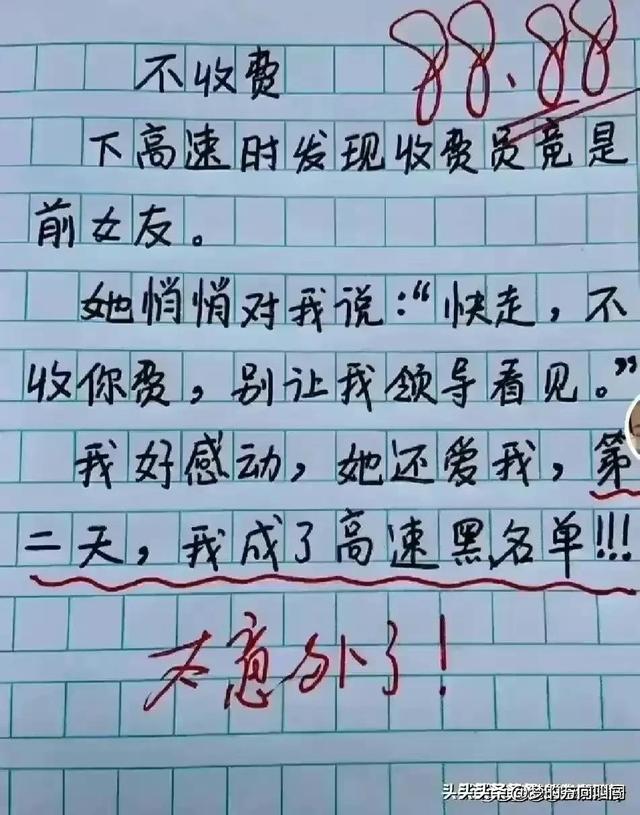 不收费
88.88
下高速时发现收费员竟是
前女友。
她悄悄对我说：“快走，不
收你费，别让我领导看见。”
我好感动，她还爱我，第
二天，我成了高速黑名单!!!
太意外了!